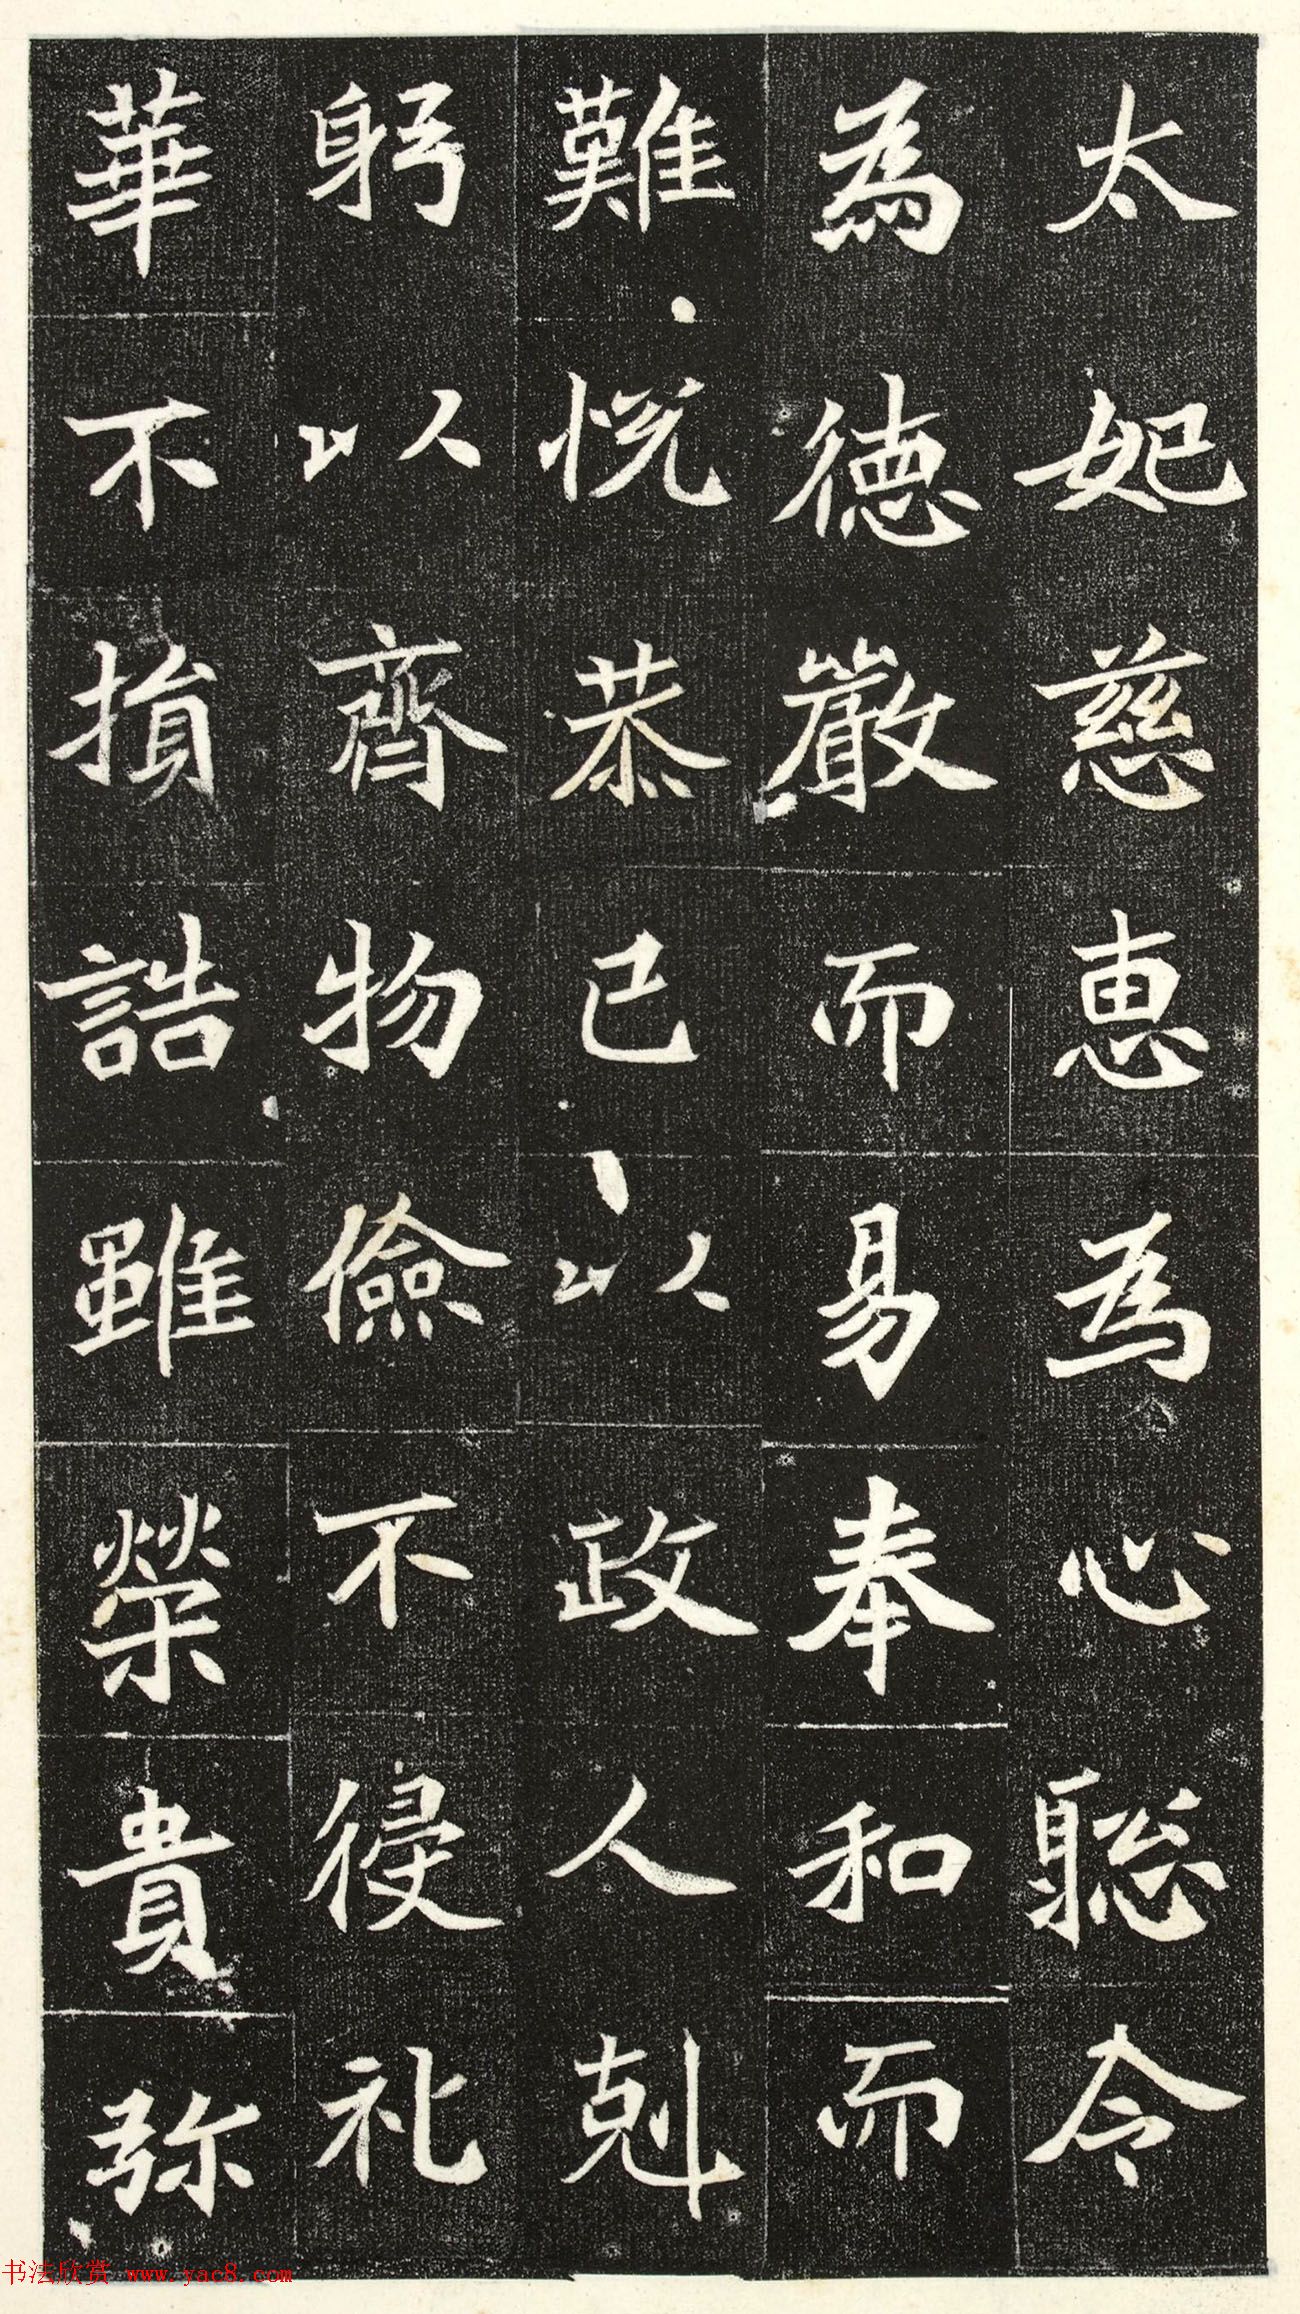 太妃慈恵為心聡令
為德巖而易奉和而
難悦恭已以政人剋
躬以齊物儉不侵礼
華不損誥雖榮貴弥
书法欣赏 www.yac8.com